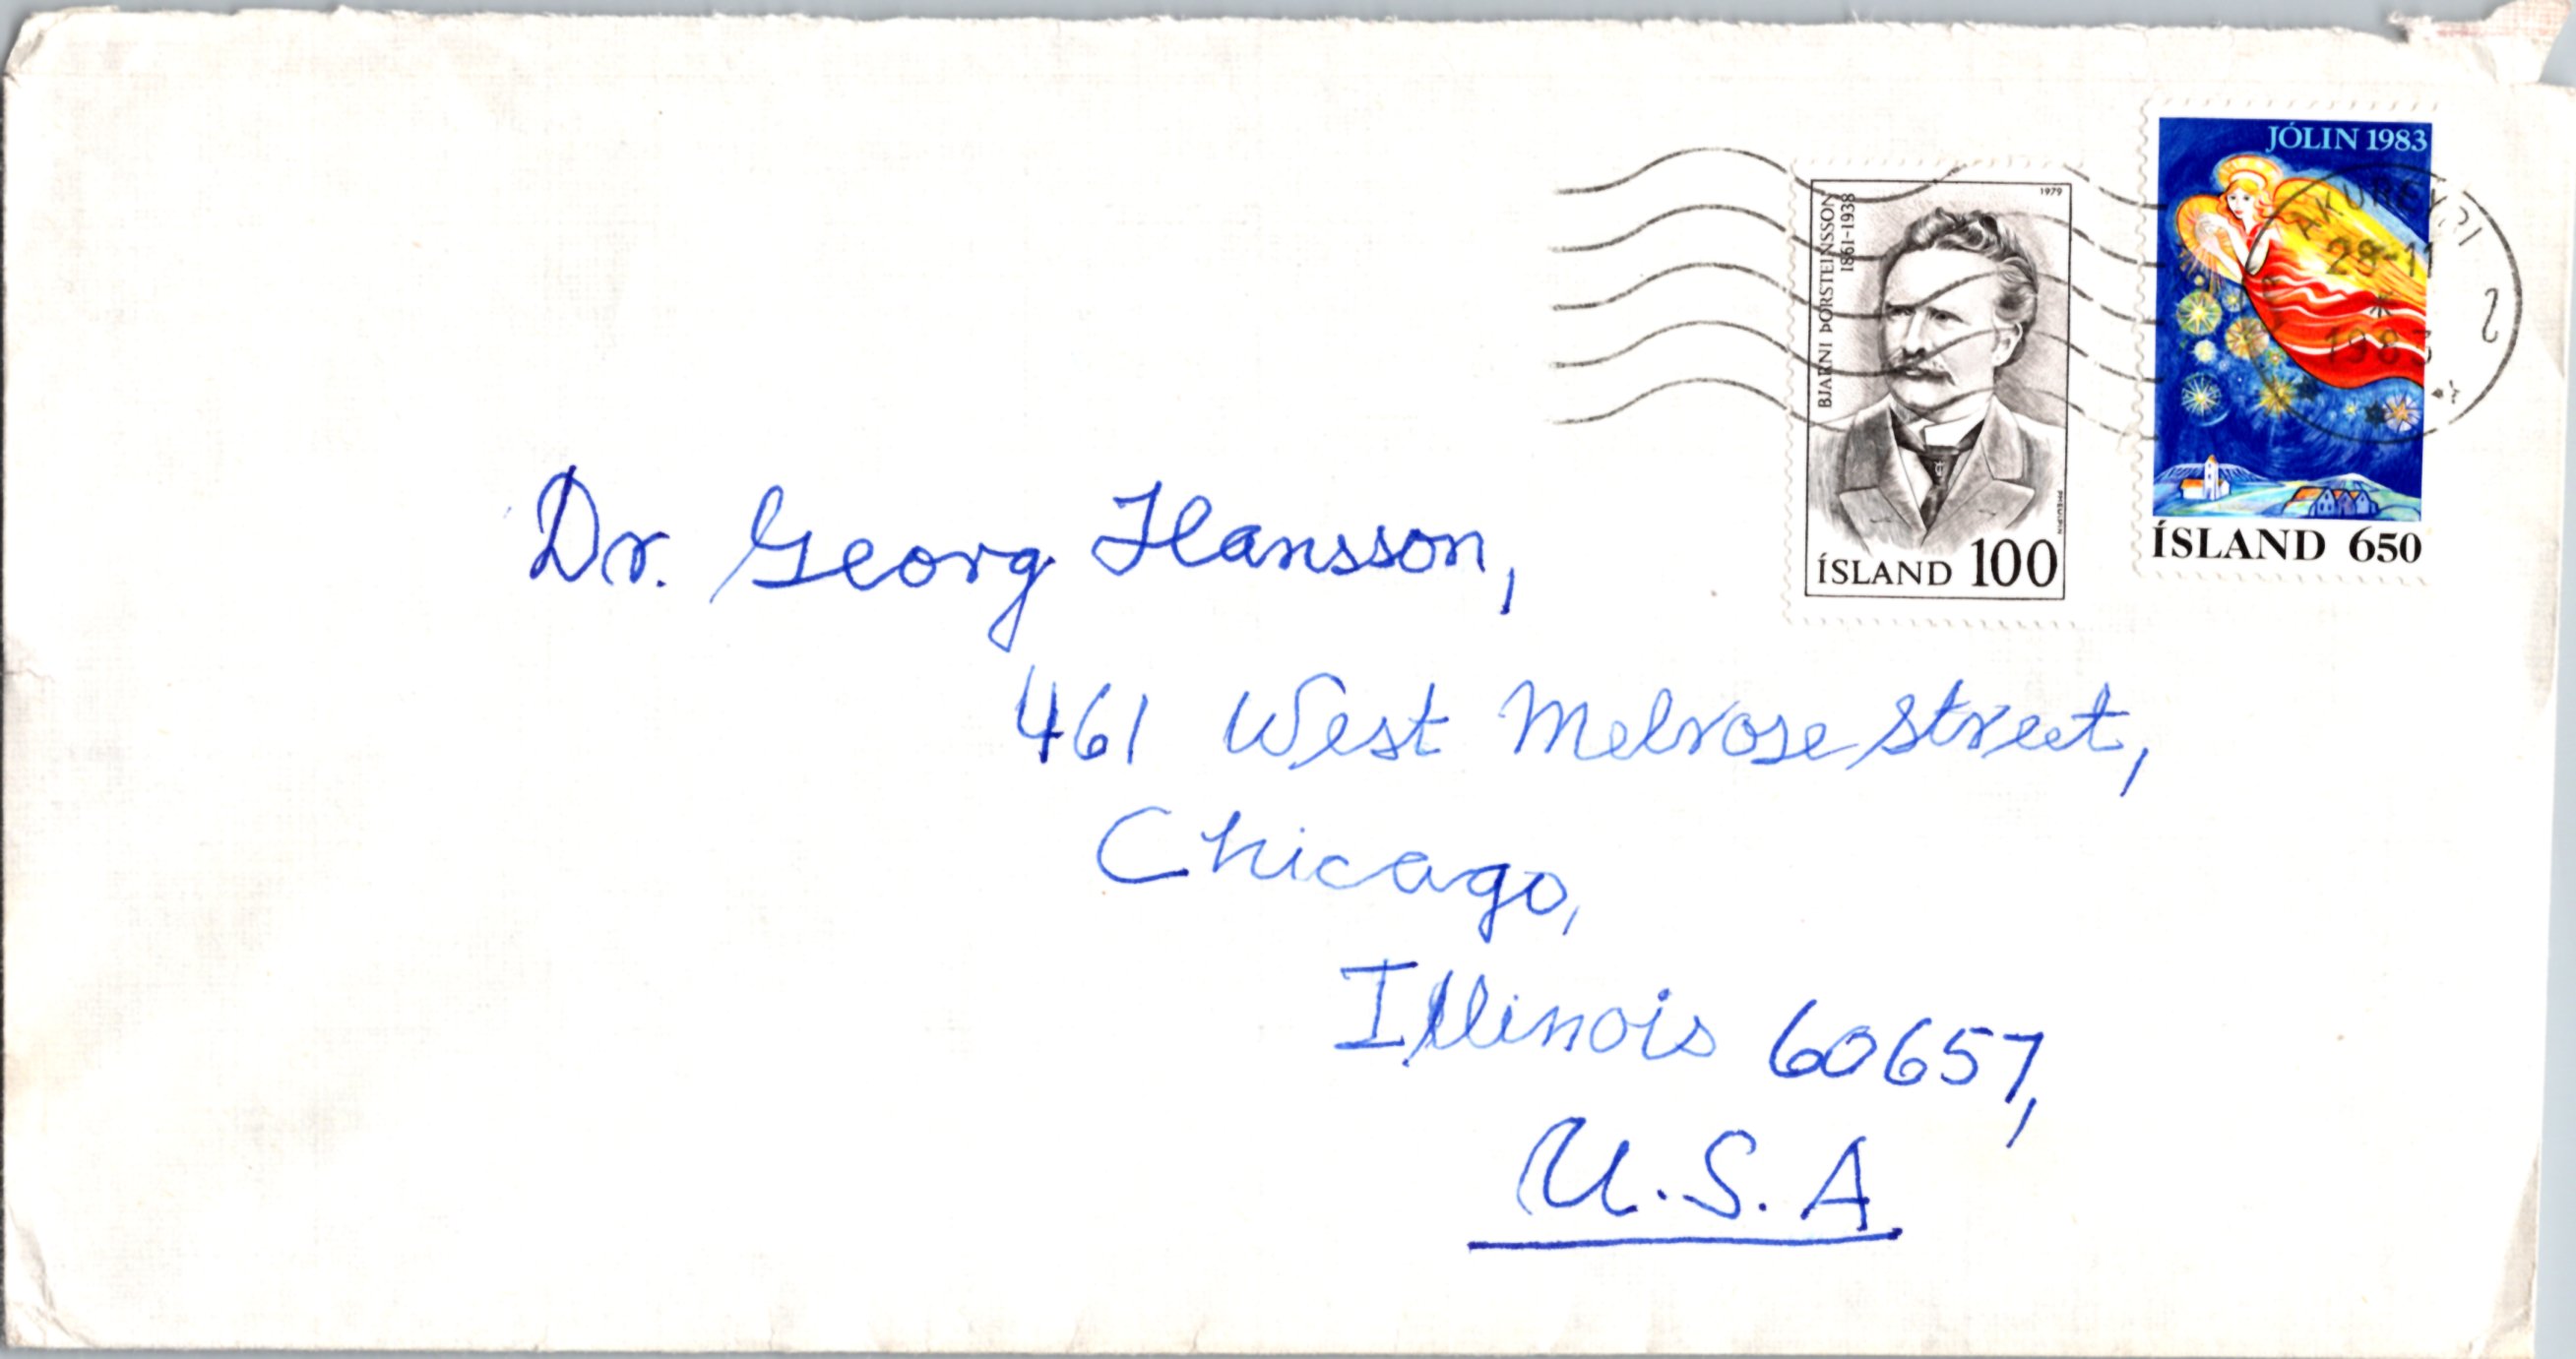 JÓLIN 1983
ÍSLAND 650
1979
BJARNI ÞORSTEINSSON
1861-1938
ÍSLAND 100
AKUREYRI
29-11
1983
2
Dr. Georg Hansson,
461 West Melrose Street,
Chicago,
Illinois 60657,
U.S.A.